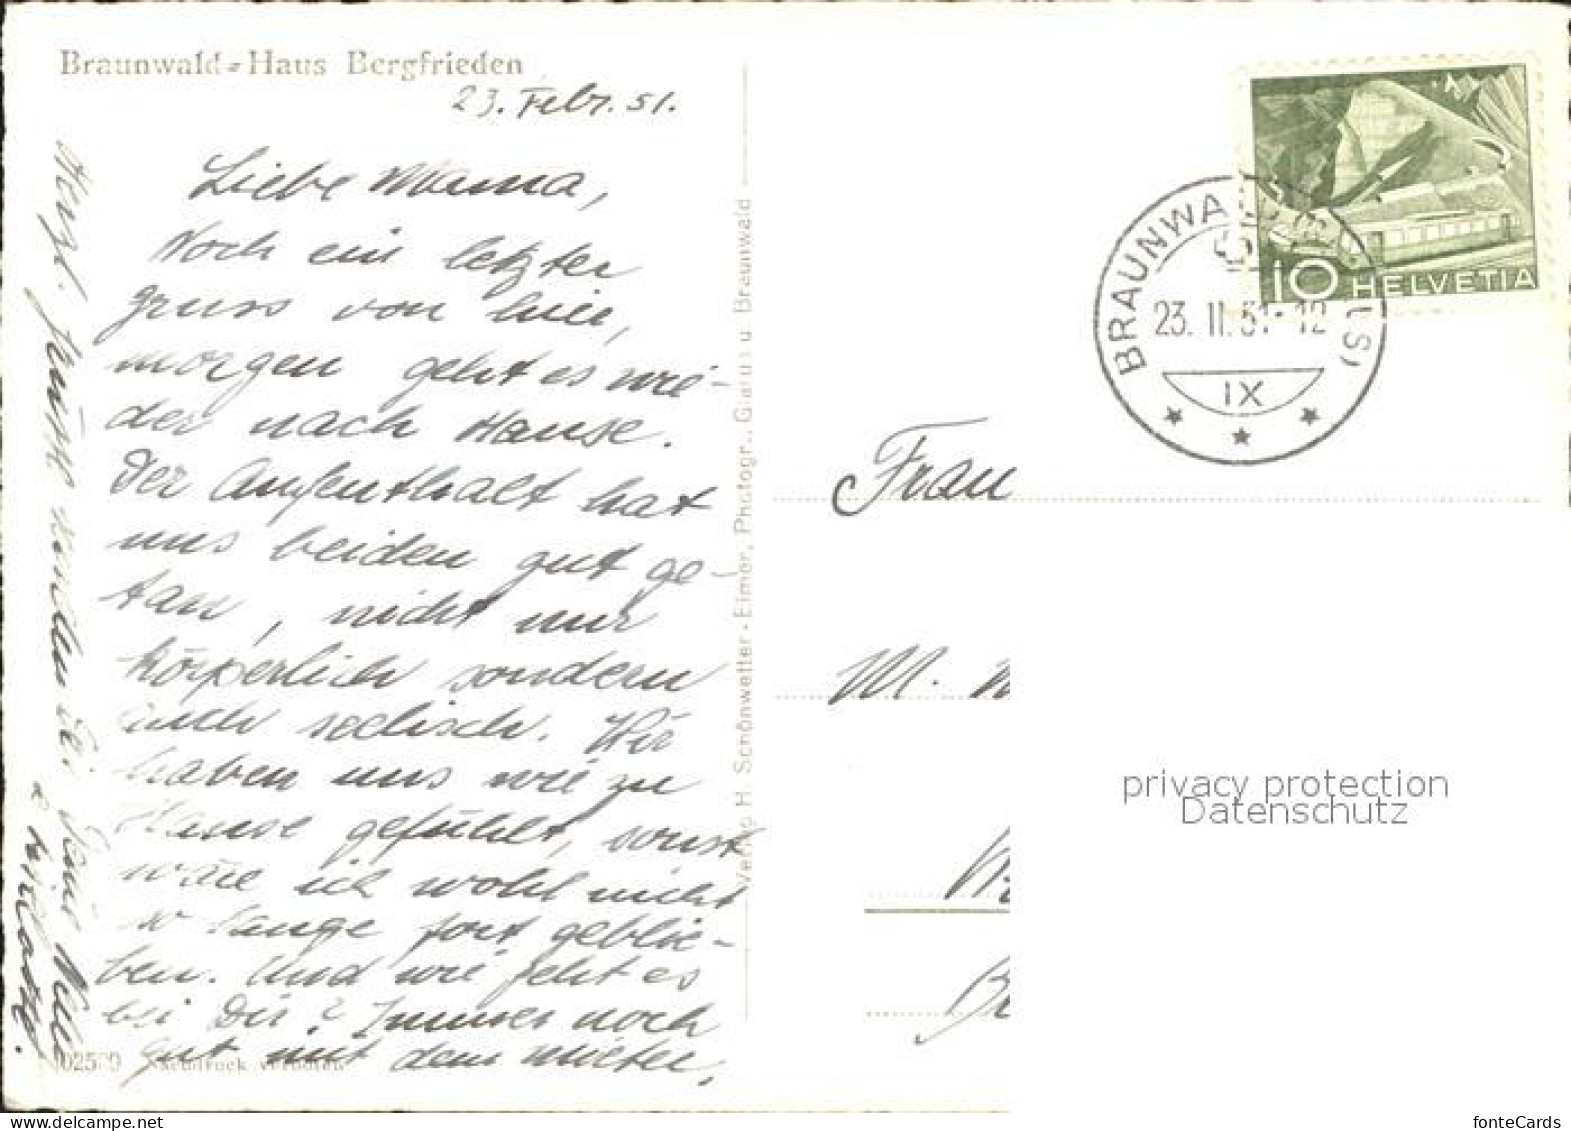 Braunwald-Haus Bergfrieden
23. Febr. 51.
Liebe Mama,
Noch ein letzter
gruss von hier,
morgen geht es wie-
der nach Hause.
Der Aufenthalt hat
uns beiden gut ge-
tan, nicht nur
körperlich sondern
auch seelisch. Wir
haben uns wie zu
Hause gefühlt, sonst
wäre ich wohl nicht
so lange fort geblie-
ben. Und wie geht es
bei Dir? Immer noch
gut mit dem Mieter.
Herzl. grüsst
02579 Nachdruck verboten
Verlag H. Schönwetter-Elmer, Photogr., Glarus u. Braunwald
HELVETIA
10
BRAUNWALD
23. II. 51-12
IX
Frau
M.
privacy protection
Datenschutz
fonteCards
delcampe.net